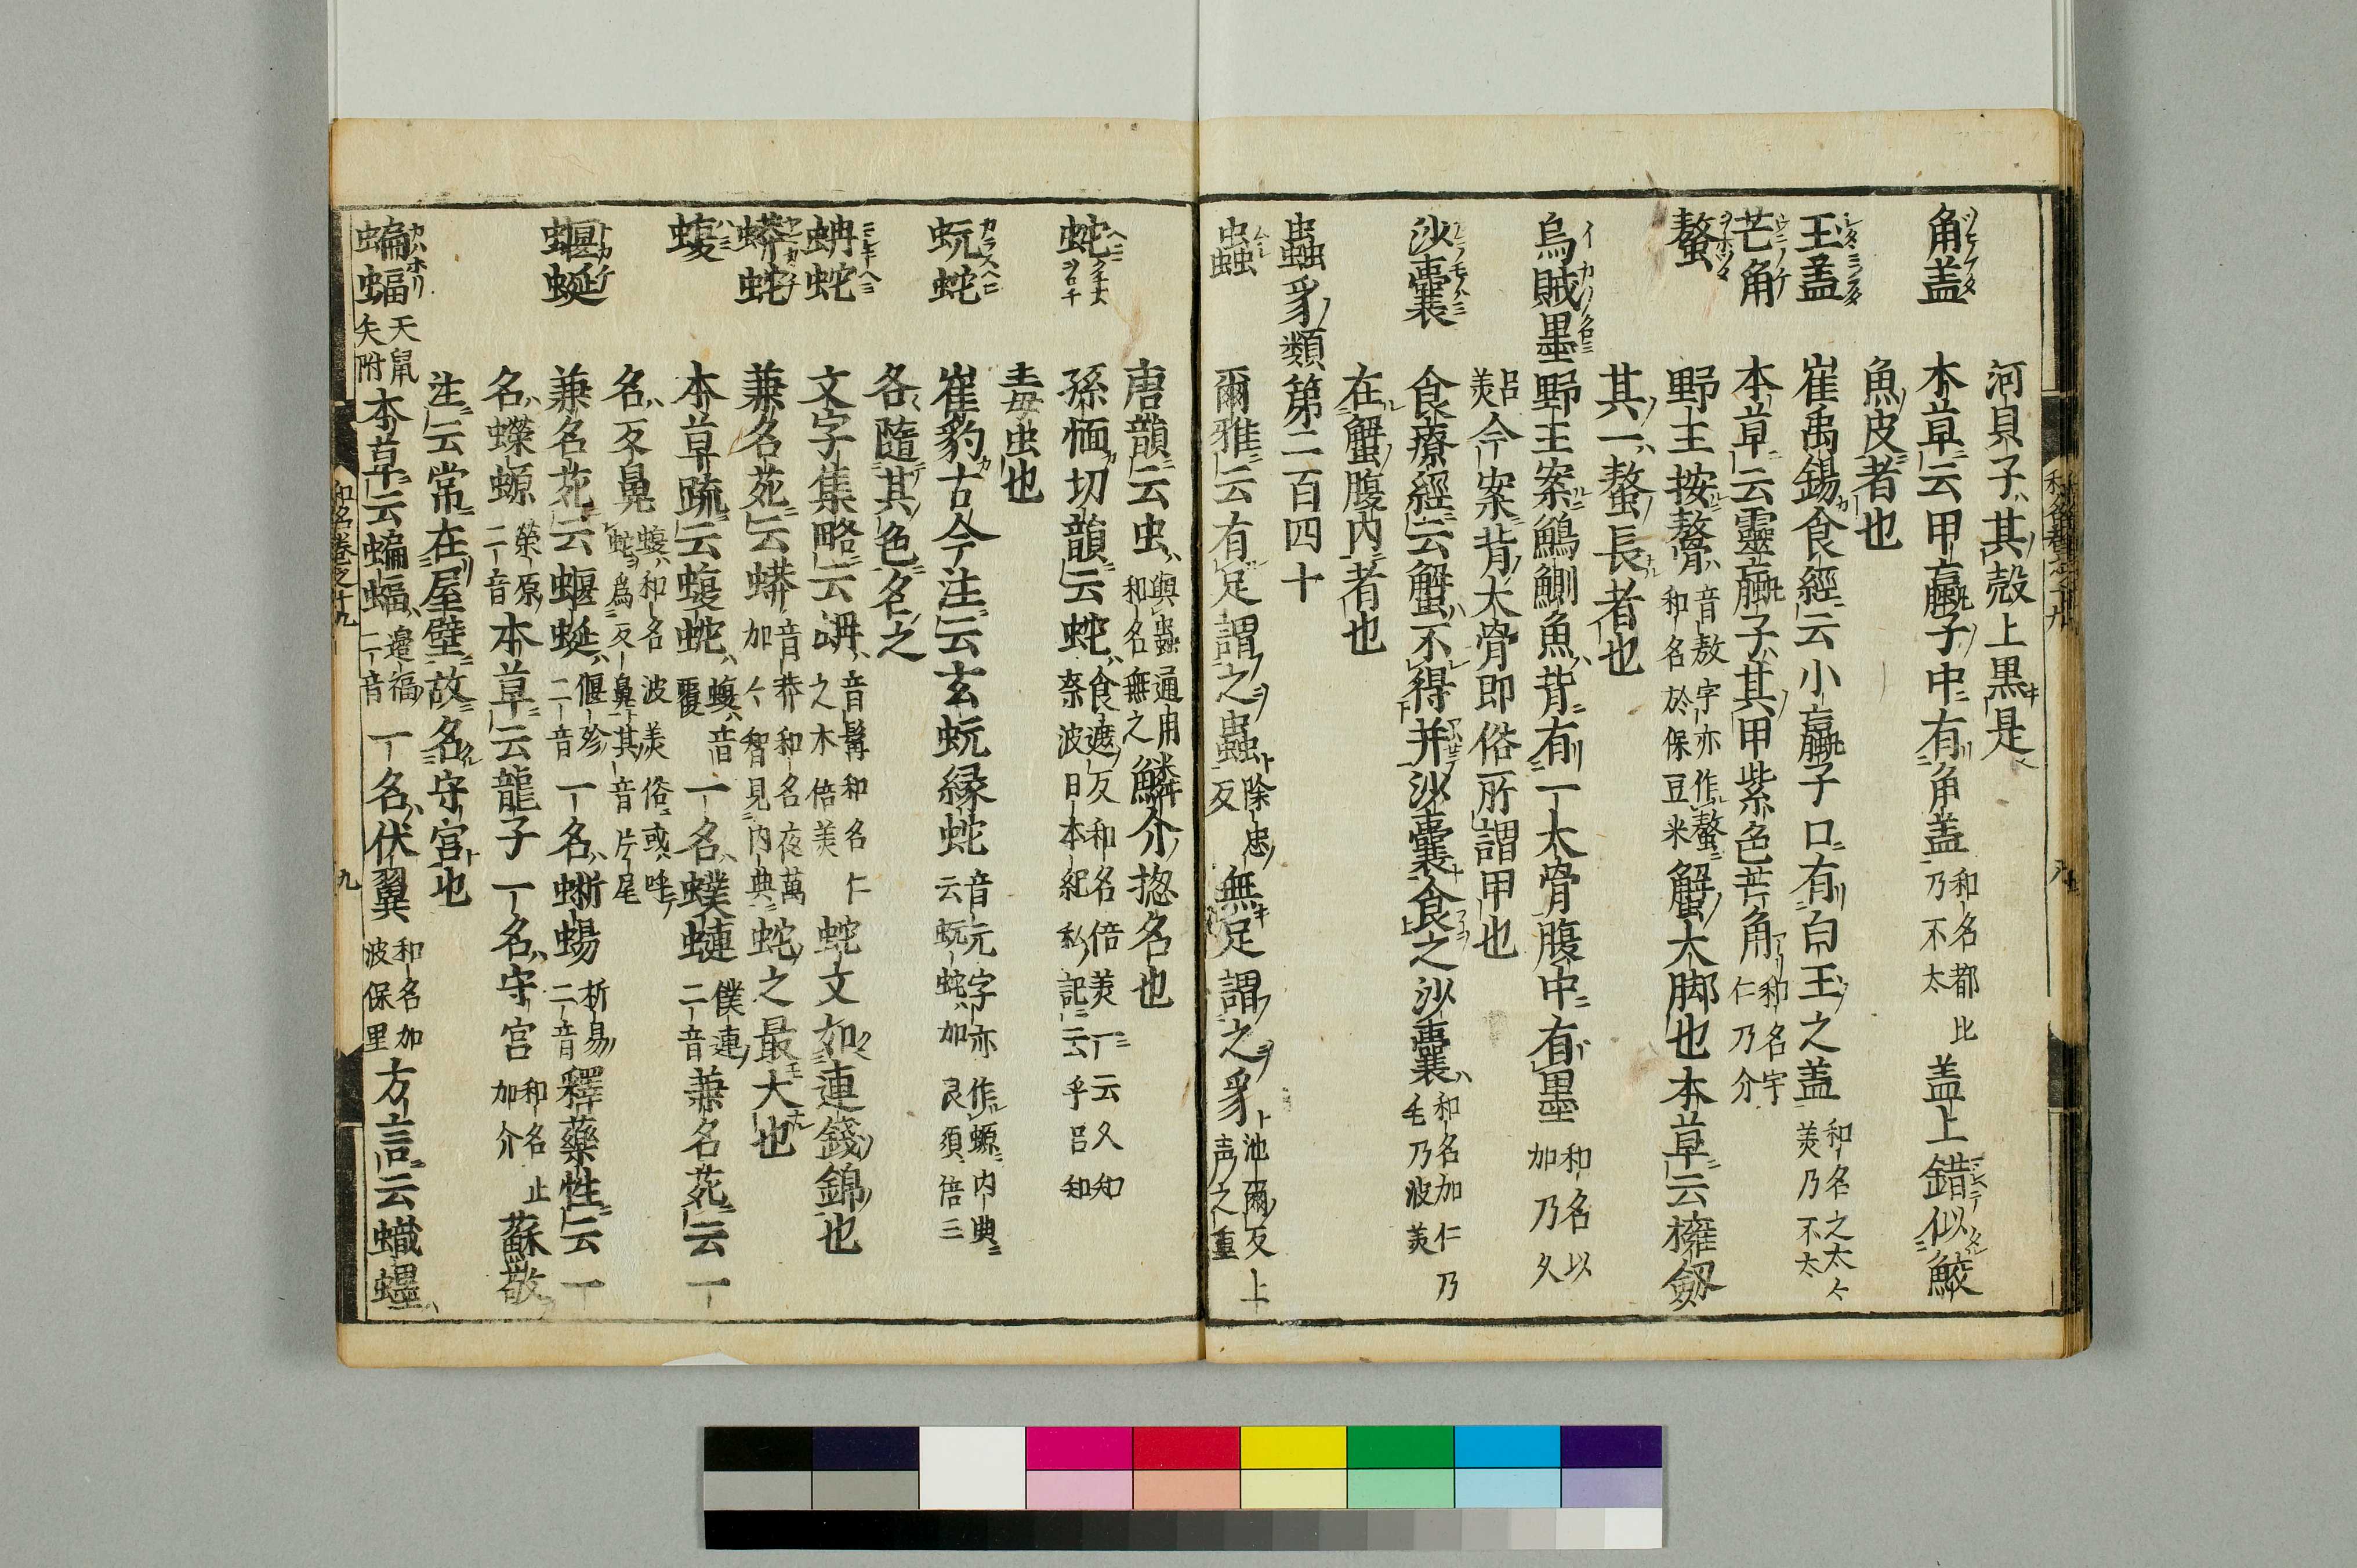 河貝子其殻上黒是
角盖 本草云甲蠃子中有角盖 和名都比乃不太 盖上錯似鮫
魚皮者也
王盖 崔禹錫食經云小蠃子口有白王之盖 和名之太々美乃不太
芒角 本草云靈蠃子其甲紫色芒角 和名宇仁乃介
螯 野王按螯 音敖字亦作螯和名於保豆米 蟹大脚也本草云擁劔
其一螯長者也
烏賊墨 野王案鷠鰂魚背有一大骨腹中有墨 和名以加乃久
呂美 今案背大骨即俗所謂甲也
沙囊 食療經云蟹不得并沙囊食之沙囊 和名加仁乃毛乃波美
在蟹腹内者也
蟲豸類第二百四十
蟲 爾雅云有足謂之蟲 除忠反 無足謂之豸 池爾反上声之重
唐韻云虫 與蟲通用和名無之 鱗介揔名也
蛇 孫愐切韻云蛇 食遮反和名倍美一云久知奈波日本紀私記云乎呂知
毒虫也
蚖蛇 崔豹古今注云玄蚖緑蛇 音元字亦作螈内典云蚖蛇加良須倍三
各隨其色名之
蚺蛇 文字集略云蚺 音髯和名仁之木倍美 蛇文如連錢錦也
蟒蛇 兼名苑云蟒 音莽和名夜萬加々智見内典 蛇之最大也
蝮 本草疏云蝮蛇 蝮音覆 一名蟔蝩 僕連二音 兼名苑云一
名反鼻 蝮和名波美俗或呼蛇爲反鼻其音片尾
蝘蜓 兼名苑云蝘蜓 偃殄二音 一名蜥蜴 析易二音 釋藥性云一
名蠑螈 榮原二音 本草云龍子一名守宮 和名止加介 蘇敬
注云常在屋壁故名守宮也
蝙蝠 天鼠矢附 本草云蝙蝠 邊福二音 一名伏翼 和名加波保里 方言云蟙䘃
和名卷之十九 九